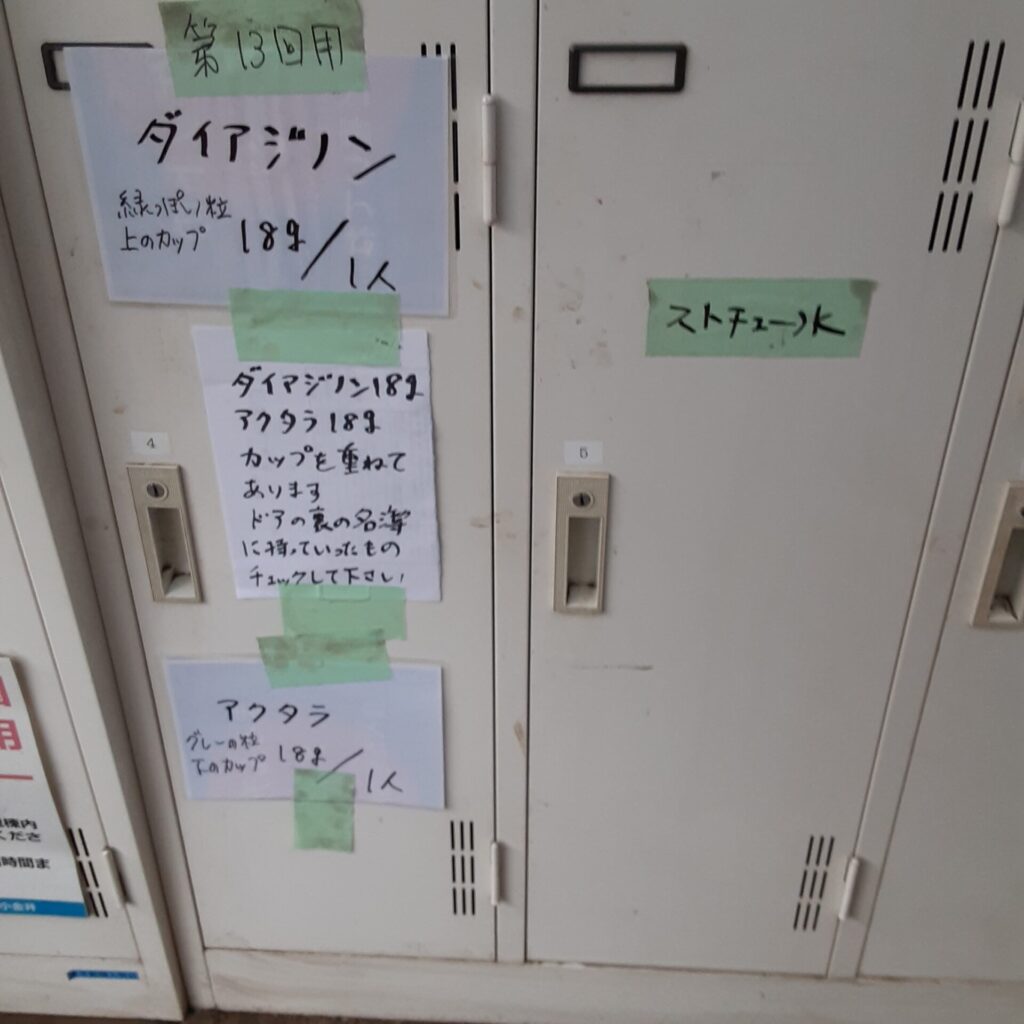 第13回用
ダイアジノン
緑っぽい粒
上のカップ 18g/1人
ダイアジノン18g
アクタラ18g
カップを重ねて
あります
ドアの裏の名簿
に持っていったもの
チェックして下さい
アクタラ
グレーの粒
下のカップ 18g/1人
4
5
ストチューK
用
棟内
くださ
時間ま
小金井